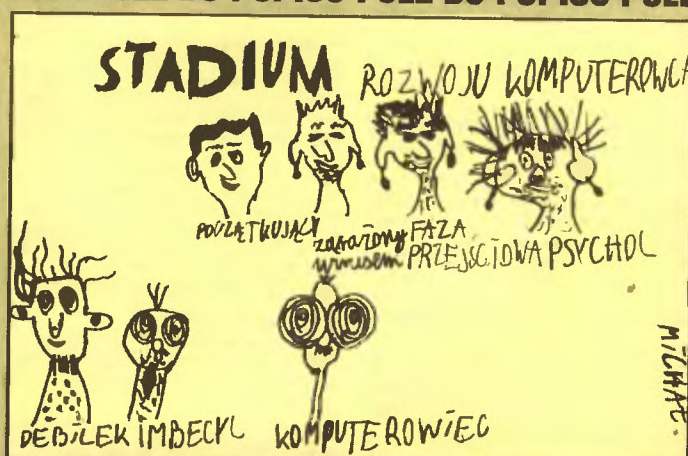 POLE DO POPISU POLE
STADIUM ROZWOJU KOMPUTEROWCA
POCZĄTKUJĄCY
zarażony wirusem
FAZA PRZEJŚCIOWA
PSYCHOL
DEBILEK
IMBECYL
KOMPUTEROWIEC
MICHAŁ.